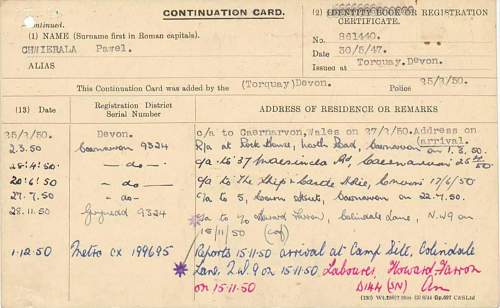 CONTINUATION CARD.
Continued.
(1) NAME (Surname first in Roman capitals).
CHWIERALA Pawel.
ALIAS
(2) IDENTITY BOOK OR REGISTRATION CERTIFICATE.
No. 861440.
Date 30/5/47.
Issued at Torquay.Devon.
This Continuation Card was added by the (Torquay)Devon. Police 25/3/50.
(13) Date Registration District Serial Number ADDRESS OF RESIDENCE OR REMARKS
25/2/50. Devon. c/a to Caernarvon,Wales on 27/2/50.Address on (arrival.
2.3.50 Caernarvon 9324 R/a at House, North Road, Caernarvon on 1.3.50.
28.4.50. — do — c/a to 37 Maesincla Rd, Caernarvon
20.6.50 — do — c/a to The Ship & Castle Hotel, 17/6/50
27.7.50 -do- c/a to 5, Street, Caernarvon on 22.7.50.
28.11.50 Gwynedd 9324 c/a to c/o Howard Farron, Colindale Lane, N.W9 on
15/11/50
1.12.50 Metro cx 199695 Reports 15.11.50 arrival at Camp Site, Colindale
Lane, N.W.9 on 15.11.50 Labourer, Howard Farron
on 15.11.50 D144 (SN)